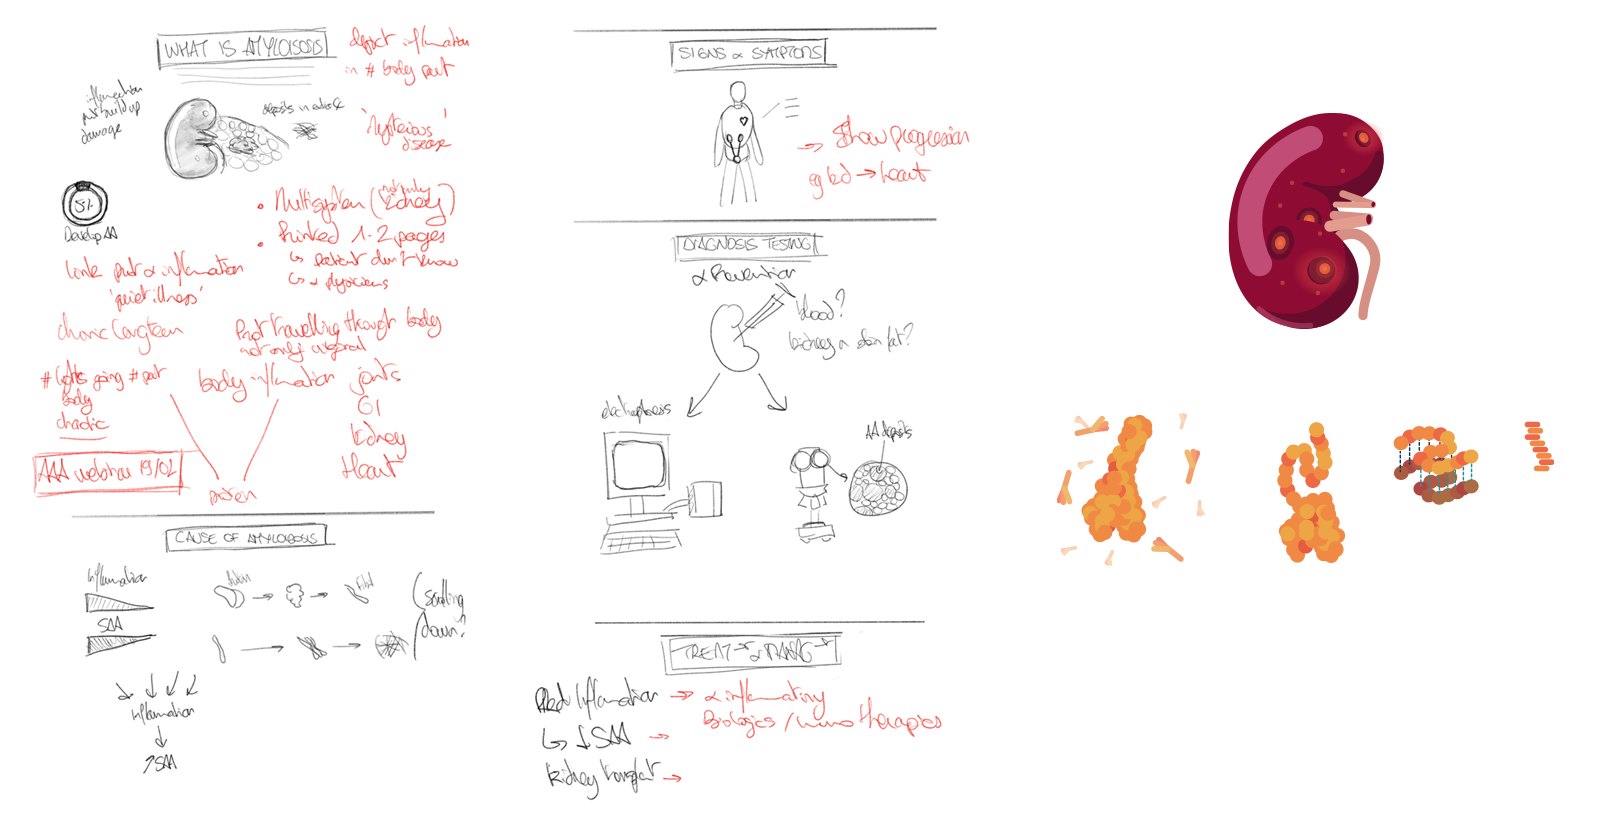 WHAT IS AMYLOISOSIS
inflammation
in # body part
inflammation
build up
damage
deposits in
'Mysterious'
disease
5%
Develop AA
• Multisystem (not only kidney)
• Printed 1-2 pages
↳ patient don't know
↳ + physicians
Link prot & inflammation
'quiet illness'
chronic longterm
Prot travelling through body
not only original
# lights going # part
body
chaotic
body inflammation
joints
GI
kidney
Heart
AAA webinar 19/02
protein
CAUSE OF AMYLOIDOSIS
Inflammation
SAA
Protein → → Fibril
(scrolling
down?
Inflammation
↗SAA
SIGNS & SYMPTOMS
→ Show progression
eg kid → heart
DIAGNOSIS TESTING
& Prevention
blood?
kidney or skin fat?
electrophoresis
AA deposits
TREAT → & MANAG →
Red Inflammation → inflammatory
Biologics / immunotherapies
↳ ↓SAA →
kidney transplant →